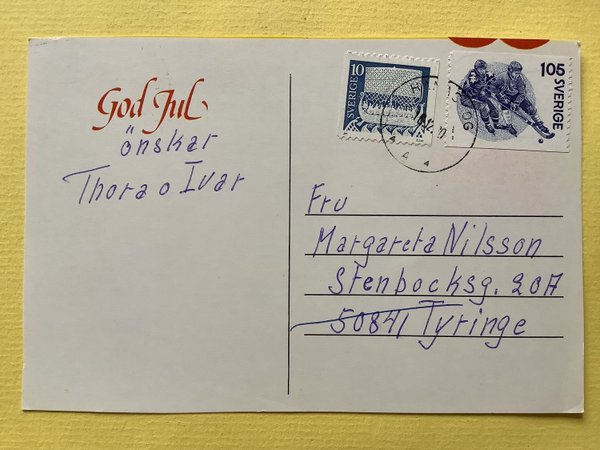 God Jul
önskar
Thora o Ivar
10
SVERIGE
105
SVERIGE
Fru
Margareta Nilsson
Stenbocksg. 20A
50841 Tyringe